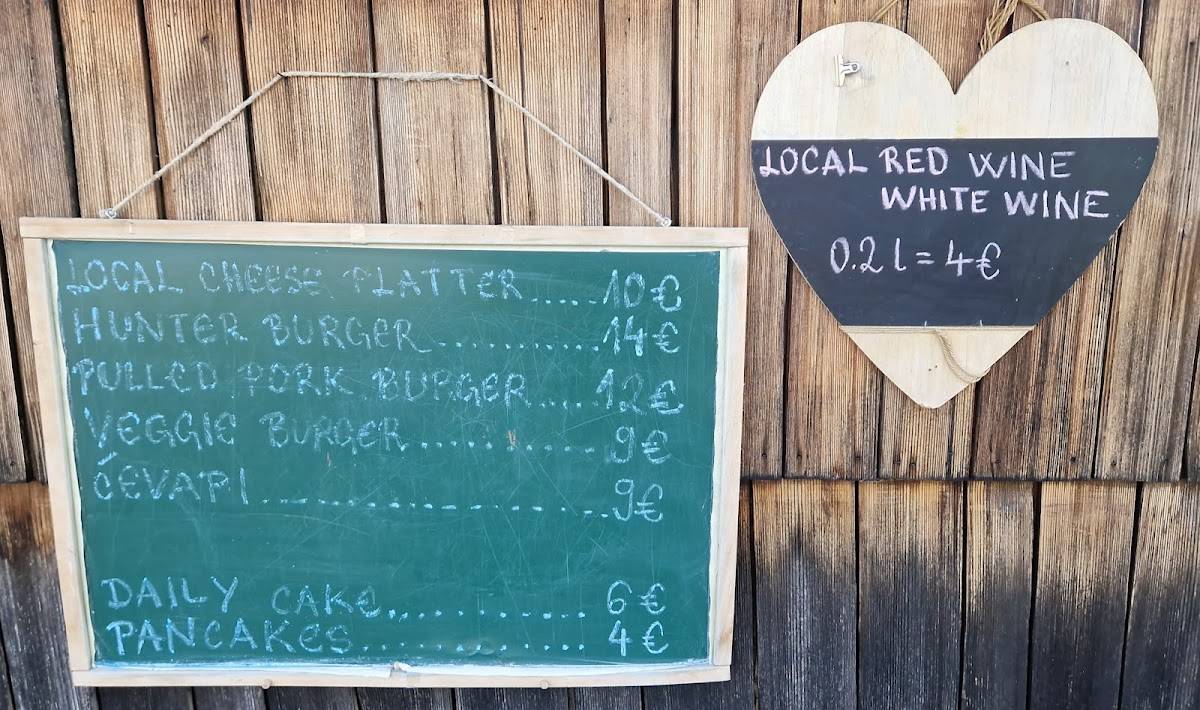 LOCAL CHEESE PLATTER.....10€
HUNTER BURGER............14€
PULLED PORK BURGER....12€
VEGGIE BURGER............9€
ČEVAPI....................9€
DAILY CAKE............6€
PANCAKES.............4€
LOCAL RED WINE
WHITE WINE
0.2 l = 4€